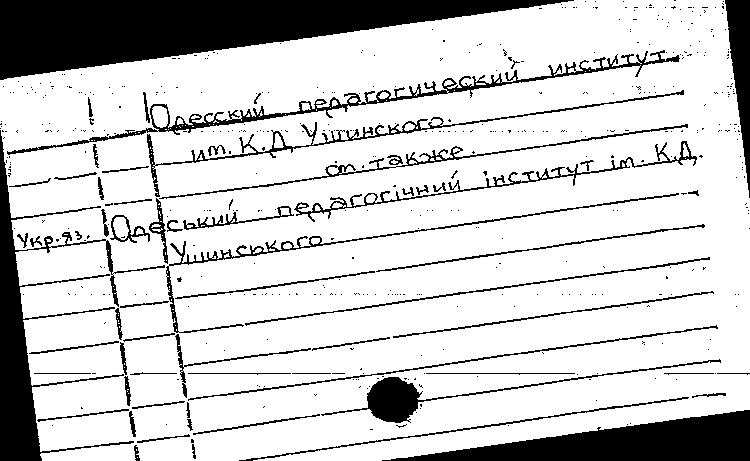 Одесский педагогический институт
им. К.Д. Ушинского.
см. также.
Укр. яз. Одеський педагогічний інститут ім. К.Д.
Ушинського.